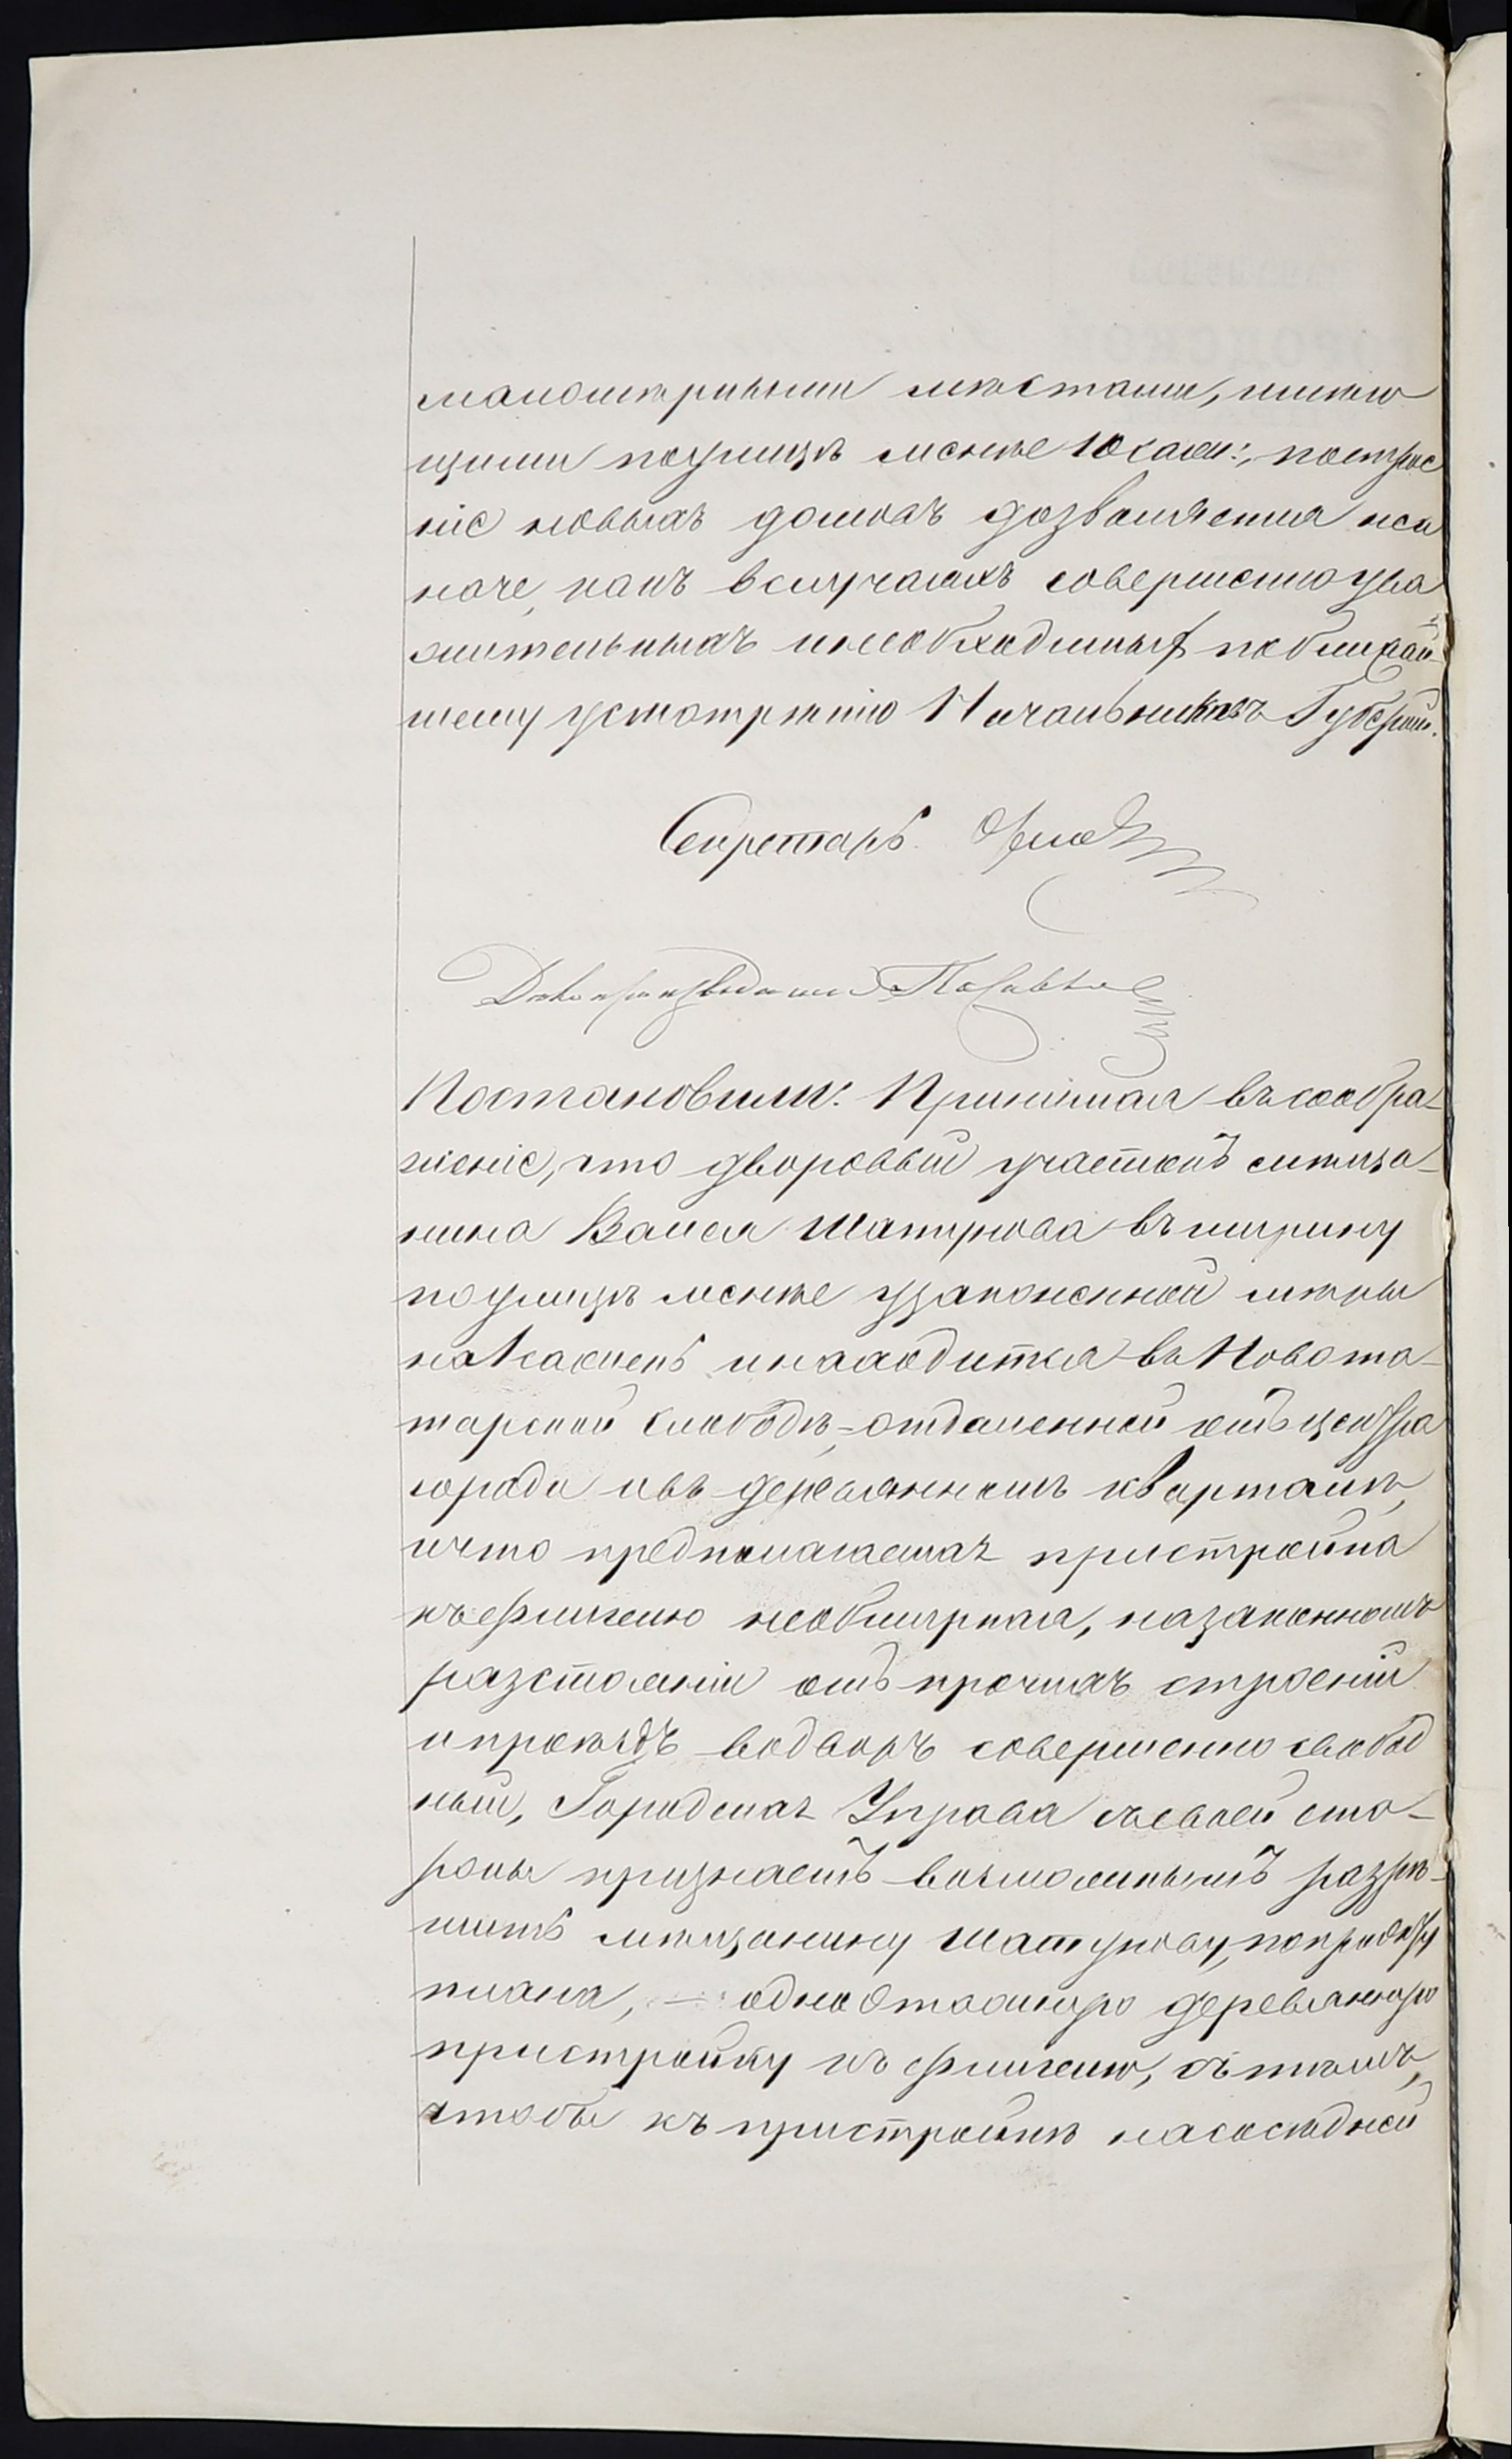 малошерными мѣстами, имѣю
щими поулицѣ менѣе 10 саж:, построе
ніе новыхъ домовъ дозволяется неи
наче, какъ вслучаяхъ совершенно ува
жительныхъ инеобходимыхъ поближай-
шему усмотрѣнію Начальниковъ Губерніи.
Секретарь
Дѣлопроизводитель
Постановили: Принимая въ сообра-
женіе, что дворовый участокъ мѣща-
нина Валея Шатунова въ ширину
по улицѣ менѣе узаконенной мѣры
на 1 сажень инаходится въ Ново та-
тарской слободѣ, отдаленной отъ центра
города ивъ деревянномъ кварталѣ,
ичто предполагаемая пристройка
къ флигелю необширная, назаконномъ
разстояніи отъ прочихъ строеній
и проѣздъ водворъ совершенно свобод
ный, Городская Управа съсвоей сто-
роны признаетъ возможнымъ разрѣ-
шить мѣщанину Шатунову, попроэкту
плана, — одноэтажную деревянную
пристройку къ флигелю, съ тѣмъ,
чтобы къ пристройкѣ насосѣдней